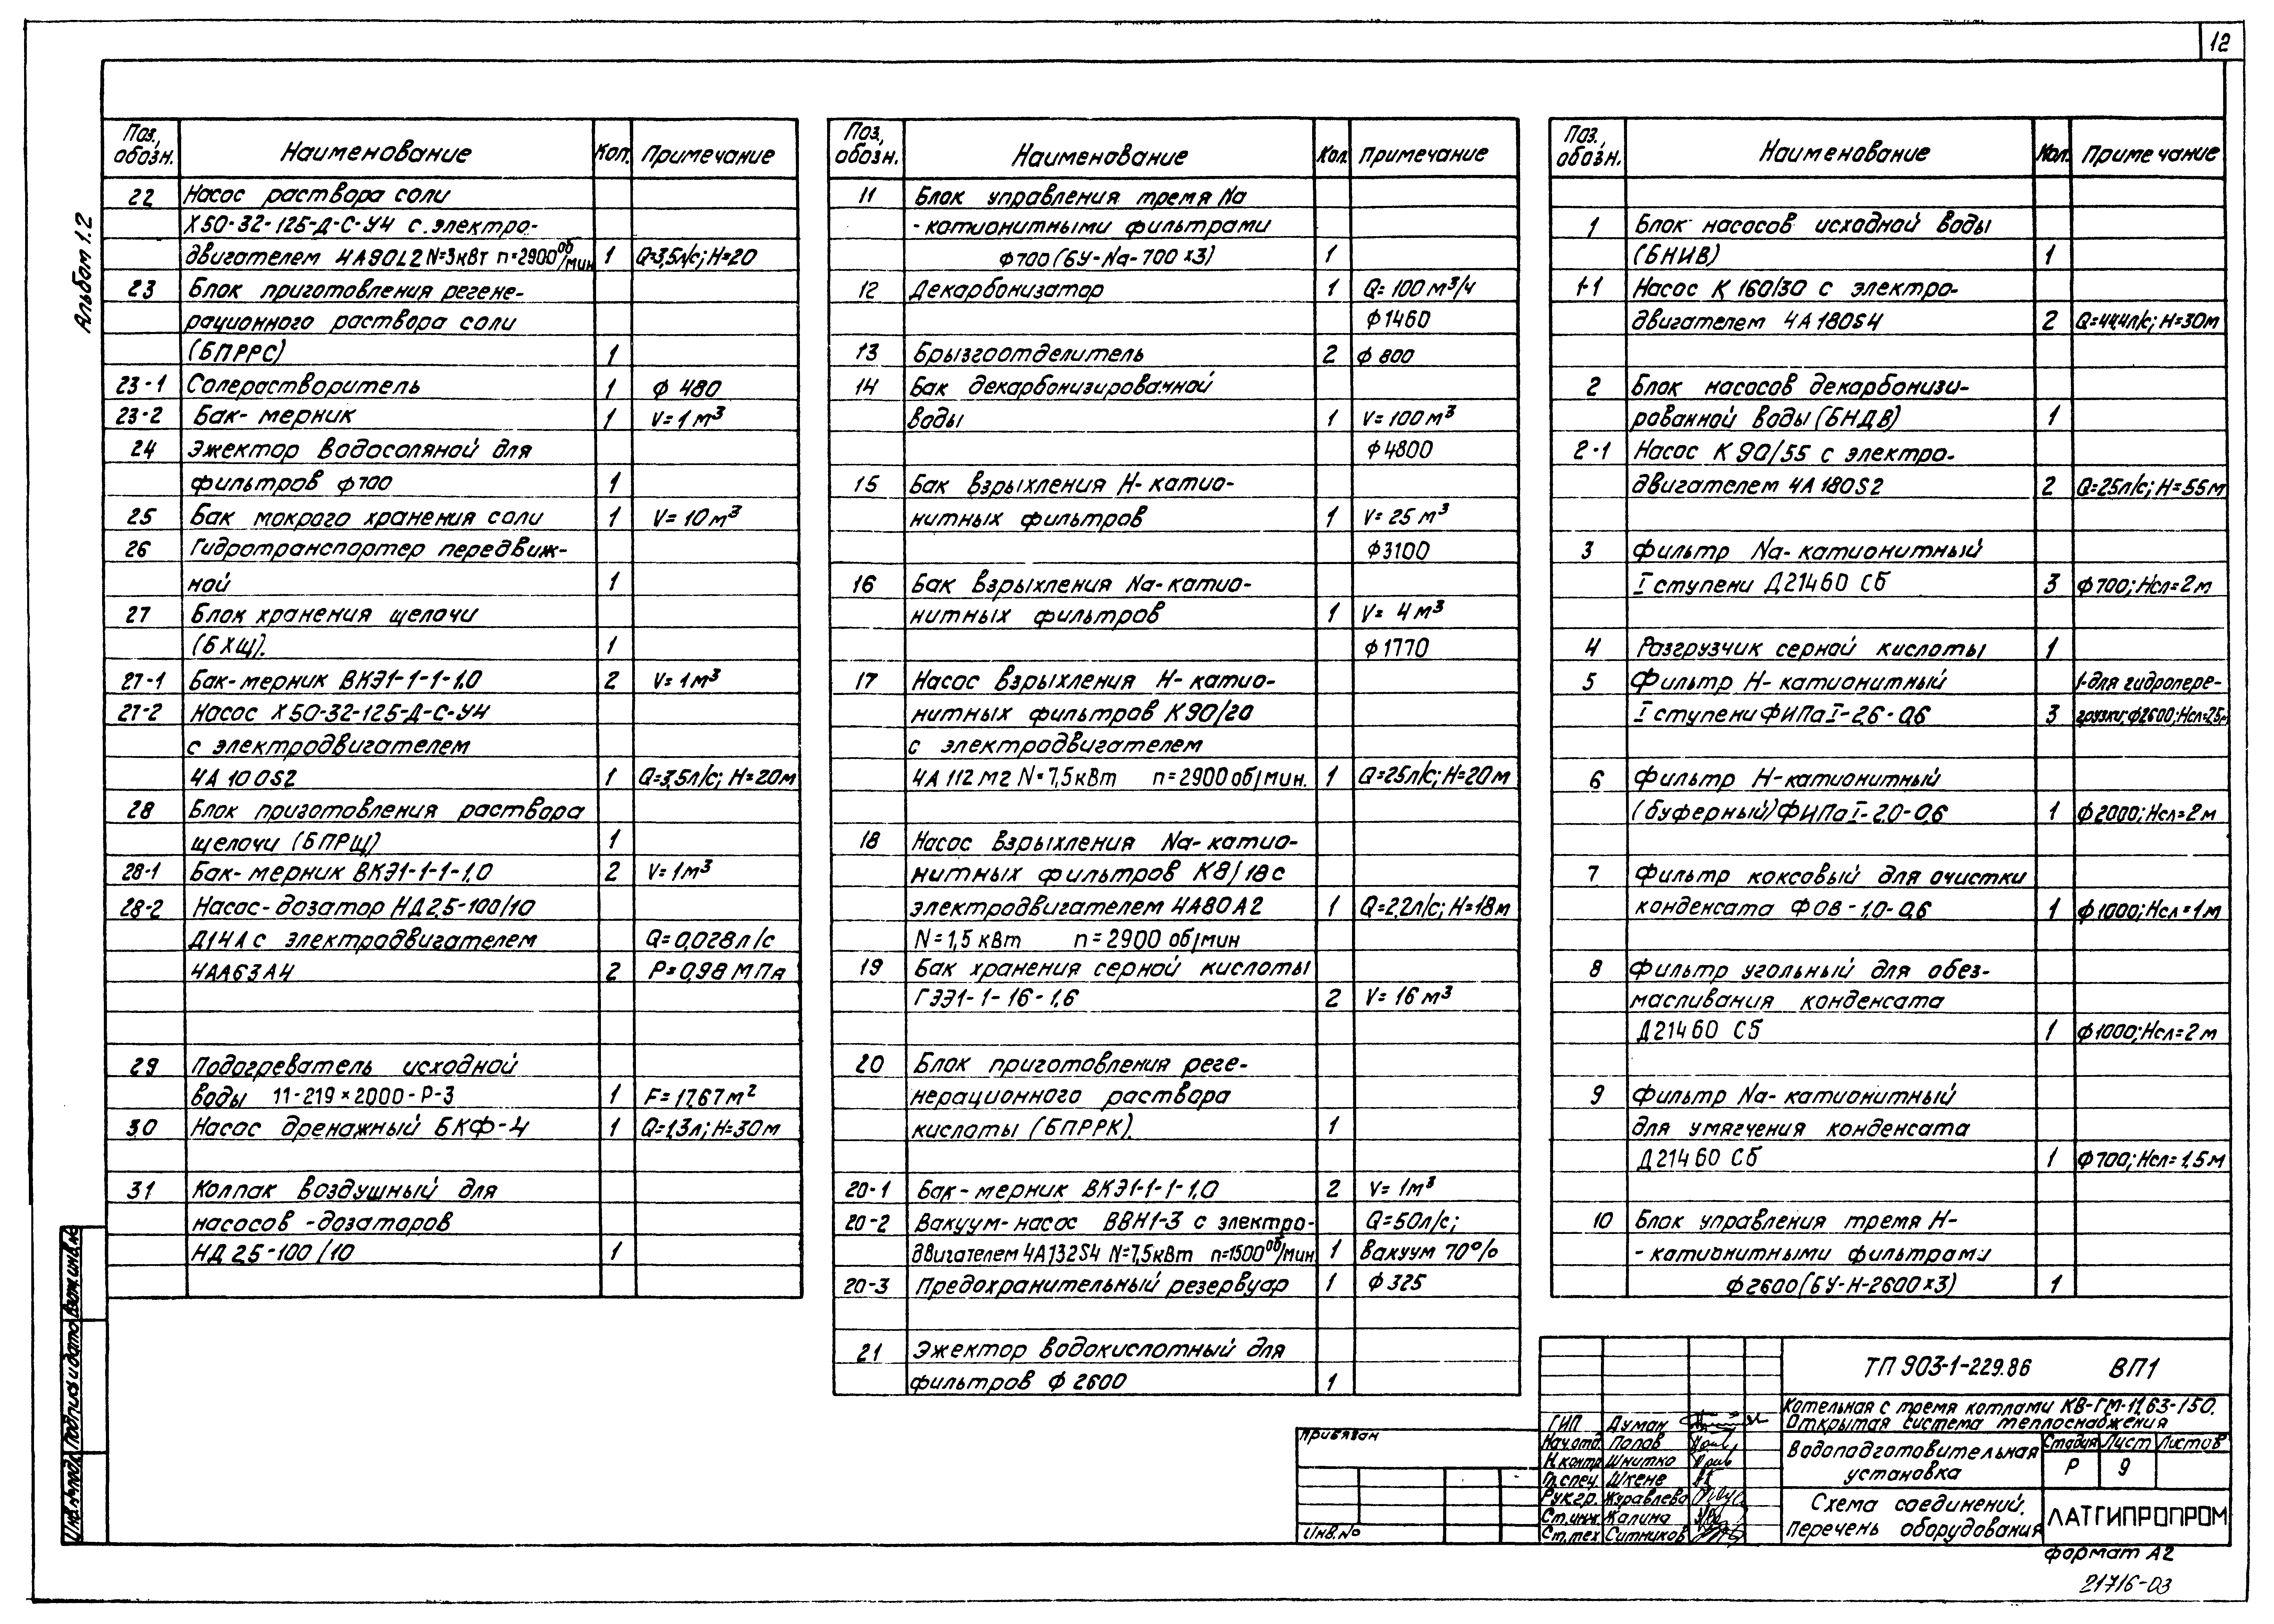 12
Альбом 1.2
Поз., обозн. Наименование Кол. Примечание
22 Насос раствора соли
Х50-32-125-Д-С-У4 с электро-
двигателем 4А90L2 N=3кВт n=2900об/мин 1 Q=3,5л/с; Н=20
23 Блок приготовления регене-
рационного раствора соли
(БПРРС) 1
23-1 Солерастворитель 1 ф 480
23-2 Бак-мерник 1 V=1м³
24 Эжектор водосоляной для
фильтров ф700 1
25 Бак мокрого хранения соли 1 V=10м³
26 Гидротранспортер передвиж-
ной 1
27 Блок хранения щелочи
(БХЩ). 1
27-1 Бак-мерник ВКЭ1-1-1-1,0 2 V=1м³
27-2 Насос Х50-32-125-Д-С-У4
с электродвигателем
4А100S2 1 Q=3,5л/с; Н=20м
28 Блок приготовления раствора
щелочи (БПРЩ) 1
28-1 Бак-мерник ВКЭ1-1-1-1,0 2 V=1м³
28-2 Насос-дозатор НД2,5-100/10
Д14А с электродвигателем Q=0,028л/с
4АА63А4 2 Р=0,98 МПа
29 Подогреватель исходной
воды 11-219×2000-Р-3 1 F=17,67м²
30 Насос дренажный БКФ-4 1 Q=1,3л; Н=30м
31 Колпак воздушный для
насосов-дозаторов
НД 2,5-100/10 1
Поз., обозн. Наименование Кол. Примечание
11 Блок управления тремя Na
-катионитными фильтрами
ф700 (БУ-Na-700×3) 1
12 Декарбонизатор 1 Q=100м³/ч
ф1460
13 Брызгоотделитель 2 ф 800
14 Бак декарбонизированной
воды 1 V=100м³
ф4800
15 Бак взрыхления Н-катио-
нитных фильтров 1 V=25 м³
ф3100
16 Бак взрыхления Na-катио-
нитных фильтров 1 V= 4м³
ф1770
17 Насос взрыхления Н-катио-
нитных фильтров К90/20
с электродвигателем
4А112М2 N=7,5кВт n=2900об/мин. 1 Q=25л/с; Н=20м
18 Насос взрыхления Na-катио-
нитных фильтров К8/18 с
электродвигателем 4А80А2 1 Q=2,2л/с; Н=18м
N=1,5 кВт n=2900 об/мин
19 Бак хранения серной кислоты
ГЭЭ1-1-16-1,6 2 V=16м³
20 Блок приготовления реге-
нерационного раствора
кислоты (БПРРК). 1
20-1 Бак-мерник ВКЭ1-1-1-1,0 2 V=1м³
20-2 Вакуум-насос ВВН1-3 с электро- Q=50л/с;
двигателем 4А132S4 N=7,5кВт n=1500об/мин 1 вакуум 70%
20-3 Предохранительный резервуар 1 ф325
21 Эжектор водокислотный для
фильтров ф 2600 1
Поз., обозн. Наименование Кол. Примечание
1 Блок насосов исходной воды
(БНИВ) 1
1-1 Насос К 160/30 с электро-
двигателем 4А180S4 2 Q=44,4л/с; Н=30м
2 Блок насосов декарбонизи-
рованной воды (БНДВ) 1
2-1 Насос К90/55 с электро-
двигателем 4А180S2 2 Q=25л/с; Н=55м
3 Фильтр Na-катионитный
I ступени Д21460 Сб 3 ф700; Нсл=2м
4 Разгрузчик серной кислоты 1
5 Фильтр Н-катионитный 1-для гидропере-
I ступени ФИПа I-2,6-0,6 3 грузки; ф2600; Нсл=2,5м
6 Фильтр Н-катионитный
(буферный) ФИПа I-2,0-0,6 1 ф2000; Нсл=2м
7 Фильтр коксовый для очистки
конденсата ФОВ-1,0-0,6 1 ф1000; Нсл=1м
8 Фильтр угольный для обез-
масливания конденсата
Д21460 Сб 1 ф1000; Нсл=2м
9 Фильтр Na-катионитный
для умягчения конденсата
Д21460 Сб 1 ф700; Нсл=1,5м
10 Блок управления тремя Н-
-катионитными фильтрами
ф2600 (БУ-Н-2600×3) 1
ТП 903-1-229.86 ВП1
Котельная с тремя котлами КВ-ГМ-11,63-150.
Открытая система теплоснабжения
ГИП Думан
Нач.отд. Попов
Н.контр. Шнитко
Гл.спец. Шкене
Рук.гр. Журавлева
Ст.инж. Калина
Ст.тех. Ситников
Водоподготовительная
установка
Стадия Лист Листов
Р 9
Схема соединений.
Перечень оборудования
ЛАТГИПРОПРОМ
Привязан
Инв.№
Инв.№ подл. Подпись и дата Взам.инв.№
формат А2
21716-03